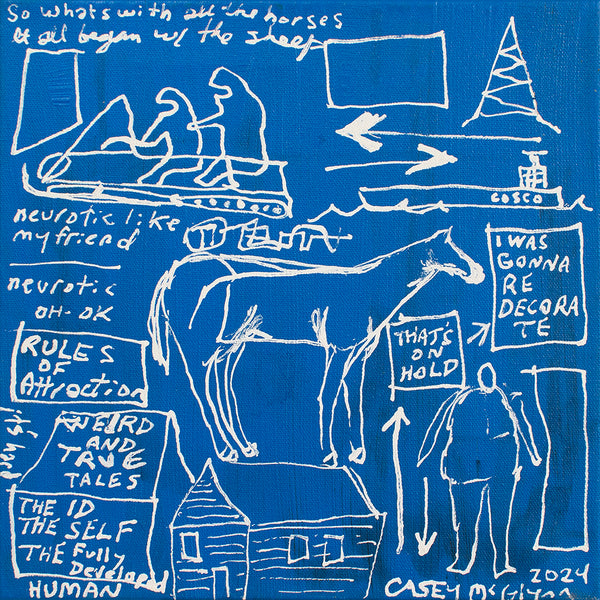 So whats with all the horses
it all began w/ the sheep
COSCO
neurotic like
my friend
neurotic
OH-OK
I WAS
GONNA
RE
DECORA
TE
THAT'S
ON
HOLD
RULES
OF
Attraction
WEIRD
AND
TRUE
TALES
THE ID
THE SELF
THE Fully
Developed
HUMAN
2024
CASEY McGlynn